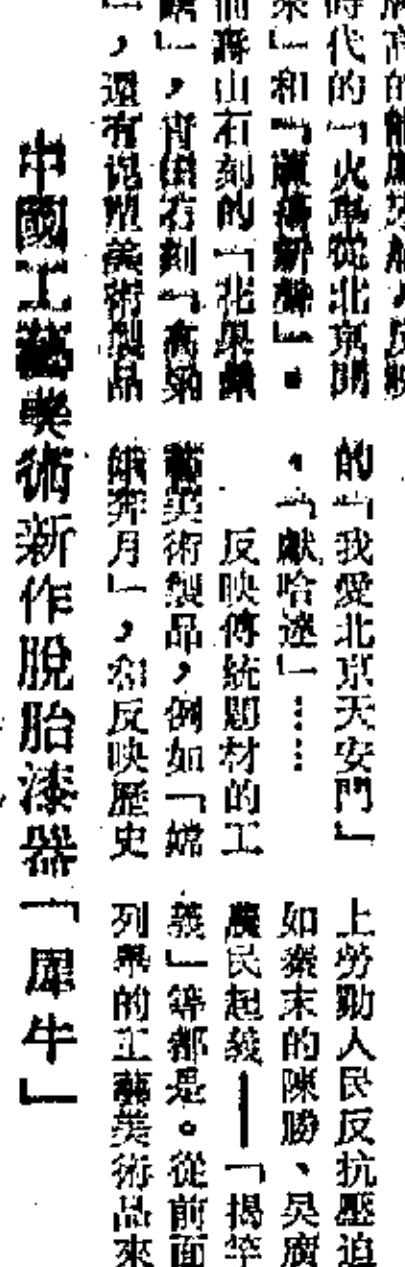 時代的「火車從北京開
來」和「蘆蕩新聲」。
前壽山石刻的「花果
」，青田石刻「高粱
」，還有泥塑美術製品
的「我愛北京天安門」
、「獻哈達」……
反映傳統題材的工
藝美術製品，例如「嫦
娥奔月」，和反映歷史
上勞動人民反抗壓迫
如秦末的陳勝、吳廣
農民起義——「揭竿
義」等都是。從前面
列舉的工藝美術品來
中國工藝美術新作脫胎漆器「犀牛」